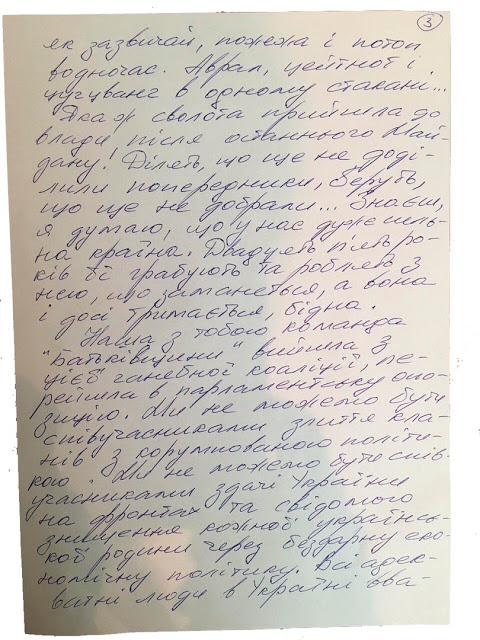 3
як зазвичай, пожежа і потоп
водночас. Аврал, цейтнот і
цугцванг в одному стакані...
Яка ж сволота прийшла до
влади після останнього Май-
дану! Ділять, що ще не поді-
лили попередники, беруть,
що ще не добрали... Знаєш,
я думаю, що у нас дуже силь-
на країна. Двадцять п'ять ро-
ків її грабують та роблять з
нею, що заманеться, а вона
і досі тримається, бідна.
Наша з тобою команда
"Батьківщини" вийшла з
цієї ганебної коаліції, пе-
рейшла в парламентську опо-
зицію. Ми не можемо бути
співучасниками злиття кла-
нів з корумпованою політи-
кою. Ми не можемо бути спів-
учасниками здачі України
на фронтах та свідомого
знищення кожної українсь-
кої родини через бездарну еко-
номічну політику. Всі адек-
ватні люди в Україні вва-